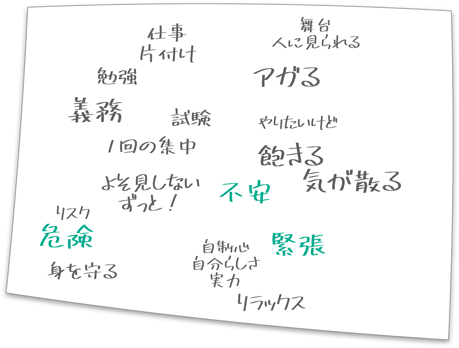 仕事
片付け
舞台
人に見られる
勉強
アガる
義務
試験
やりたいけど
1回の集中
飽きる
よそ見しない
ずっと！
不安
気が散る
リスク
危険
身を守る
自制心
自分らしさ
実力
緊張
リラックス